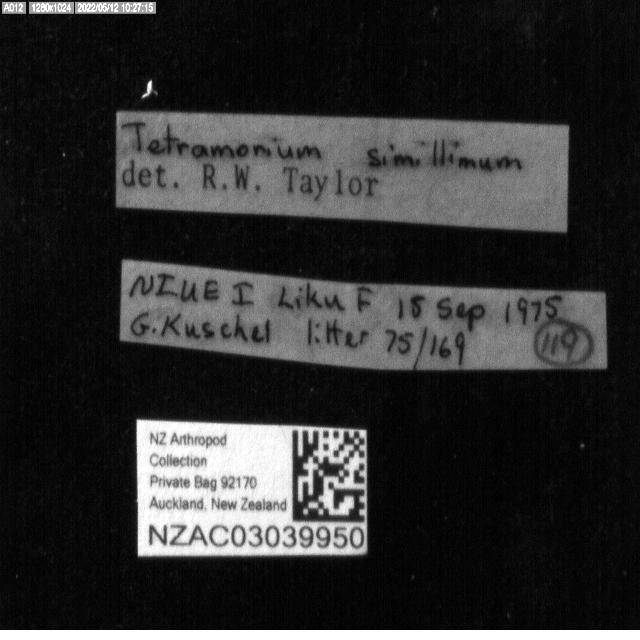 A012 1280x1024 2022/05/12 10:27:15
Tetramorium simillimum
det. R.W. Taylor
NIUE I Liku F 15 Sep 1975
G. Kuschel litter 75/169 119
NZ Arthropod
Collection
Private Bag 92170
Auckland, New Zealand
NZAC03039950